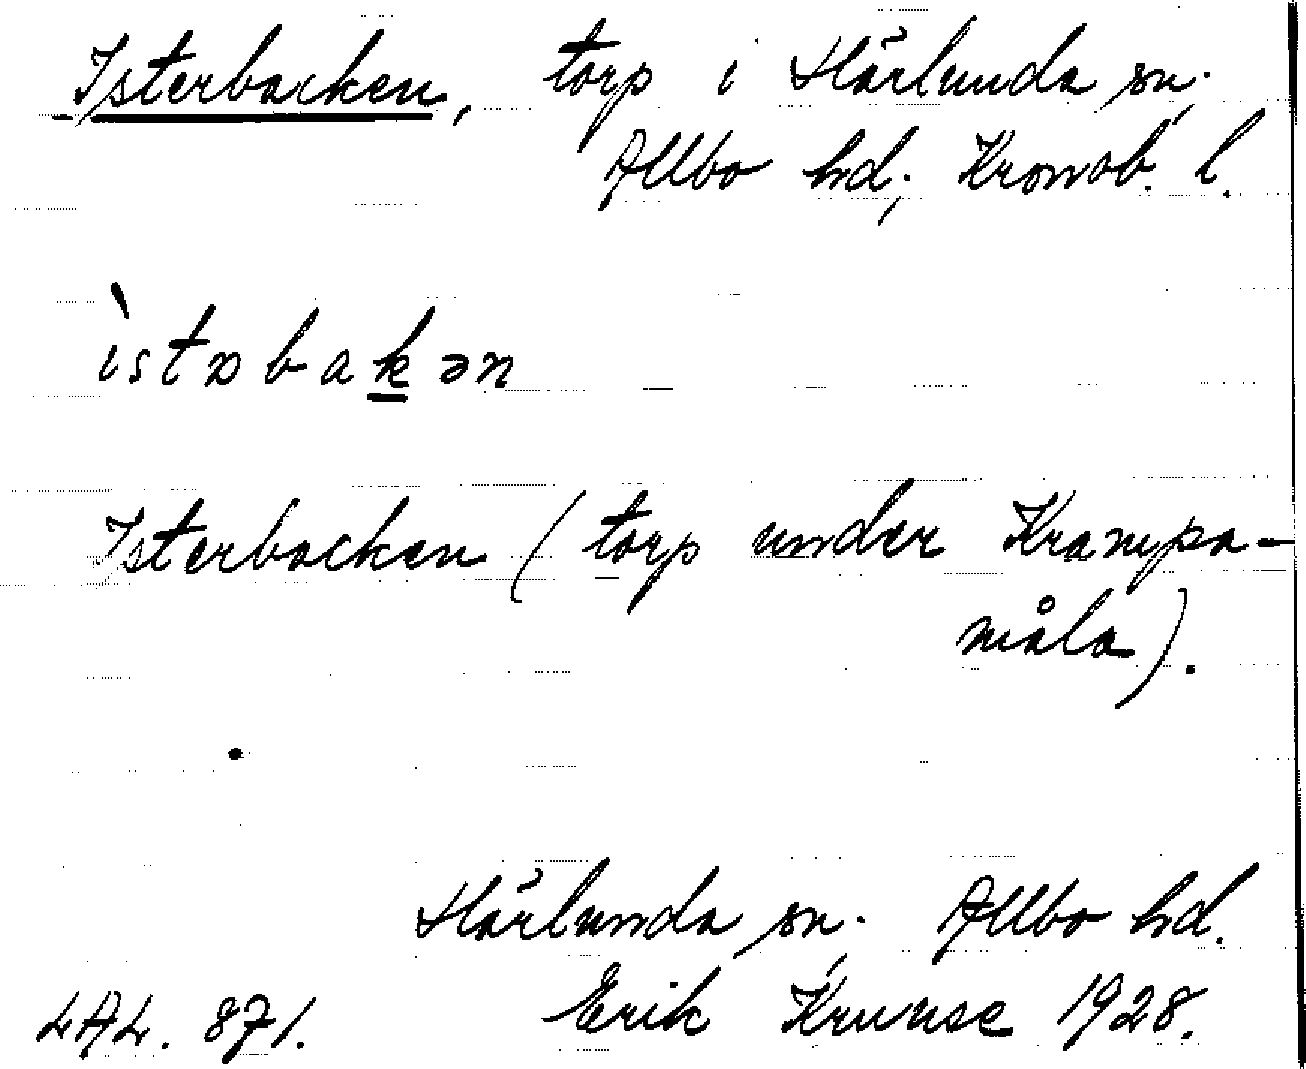 Isterbacken, torp i Härlunda sn.
Allbo hd; Kronob. l.
ìstɔbakən
Isterbacken (torp under Krampa-
måla).
Härlunda sn. Allbo hd.
LAL. 871. Erik Kruuse 1928.